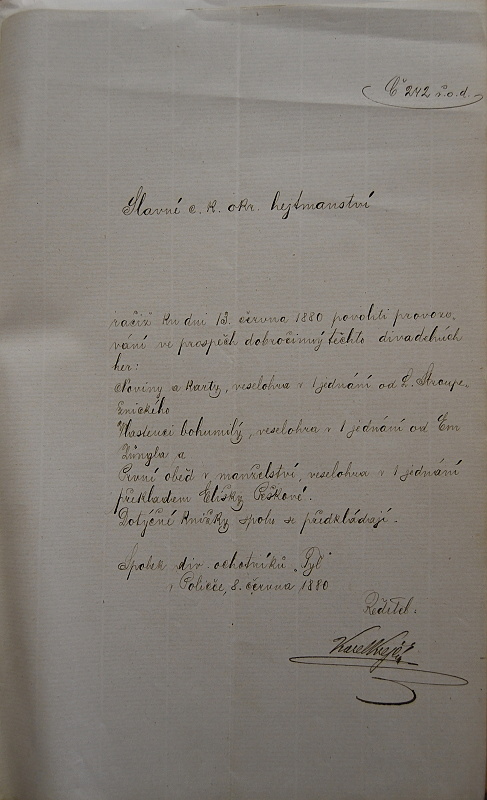 Č 242 r.o.d.
Slavné c. k. okr. hejtmanství
račiž ku dni 13. června 1880 povoliti provozo-
vání ve prospěch dobročinný těchto divadelních
her:
Noviny a karty, veselohra v 1 jednání od L. Stroupe-
žnického
Vlastenci bohumilý, veselohra v 1 jednání od Em
Züngla a
První oběd v manželství, veselohra v 1 jednání
překladem Elišky Peškové.
Dotyčné knížky spolu se předkládají.
Spolek div. ochotníků „Tyl"
Poličce, 8. června 1880
Ředitel:
Karel